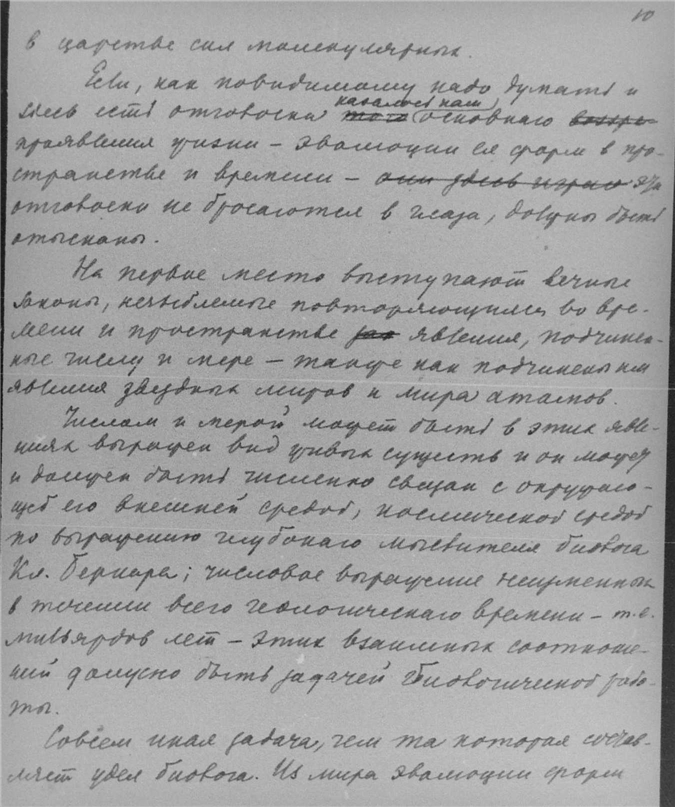 10
в царстве сил молекулярных.
Если, как повидимому надо думать и
здесь есть отголоски того казалось нам основного
проявления жизни – эволюции ея форм в про-
странстве и времени – они здесь играю эти
отголоски не бросаются в глаза, должны быть
отысканы.
На первое место выступают вечные
законы, незыблемые повторяющиеся во вре-
мени и пространстве явления, подчинен-
ные числу и мере – также как подчинены им
явления звездных миров и мира атомов.
Числом и мерой может быть в этих явле-
ниях выражен вид живых существ и он может
и должен быть численно связан с окружаю-
щей его внешней средой, космической средой
по выражению глубокаго мыслителя биолога
Кл. Бернара; числовое выражение неизменных
в течении всего геологическаго времени – т.е.
мильярдов лет – этих взаимных соотноше-
ний должно быть задачей биологической рабо-
ты.
Совсем иная задача, чем та которая состав-
ляет удел биолога. Из мира эволюции форм